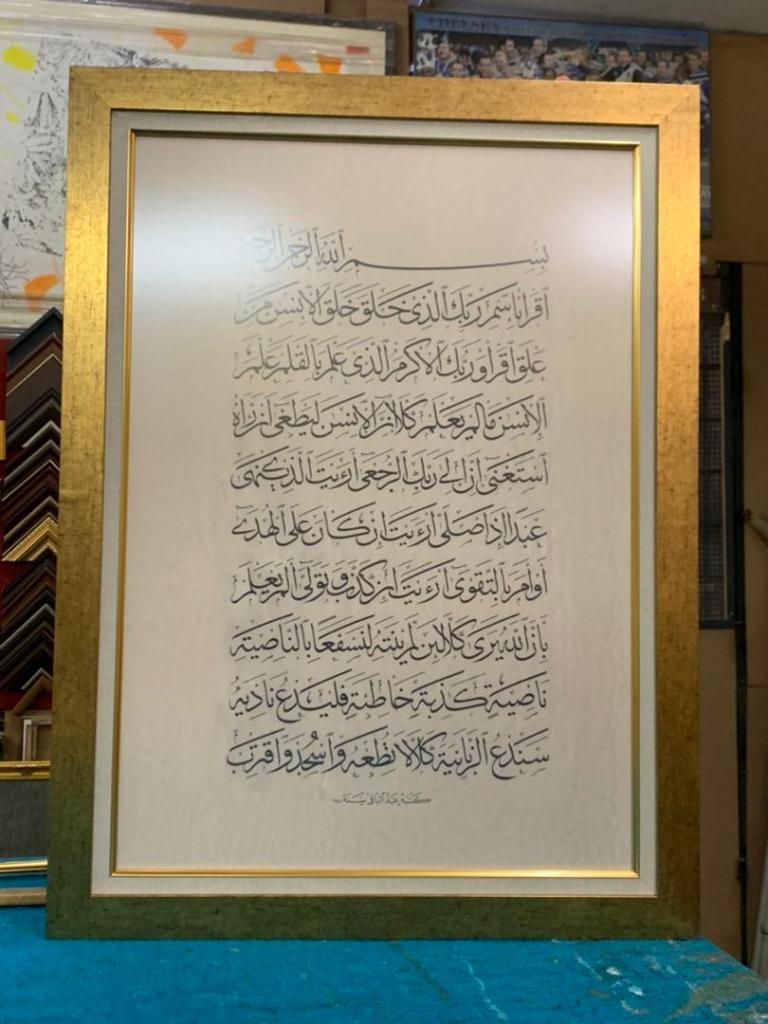 بسم الله الرحمن الرحيم
اقرأ باسم ربك الذى خلق خلق الإنسن من
علق اقرأ وربك الأكرم الذى علم بالقلم علم
الإنسن ما لم يعلم كلا إن الإنسن ليطغى أن رآه
استغنى إن إلى ربك الرجعى أرءيت الذى ينهى
عبدا إذا صلى أرءيت إن كان على الهدى
أو أمر بالتقوى أرءيت إن كذب وتولى ألم يعلم
بأن الله يرى كلا لئن لم ينته لنسفعا بالناصية
ناصية كذبة خاطئة فليدع ناديه
سندع الزبانية كلا لا تطعه واسجد واقترب
كتبه عبد الباقى سنة